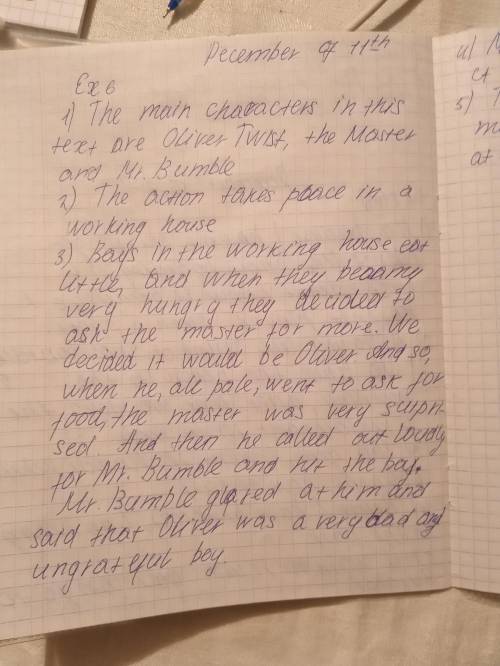 December of 11th
Ex 6
1) The main characters in this
text are Oliver Twist, the Master
and Mr. Bumble
2) The action takes place in a
working house
3) Boys in the working house eat
little, and when they becamy
very hungry they decided to
ask the master for more. We
decided it would be Oliver And so,
when he, all pale, went to ask for
food, the master was very surpri-
sed. And then he called out loudly
for Mr. Bumble and hit the boy.
Mr. Bumble glared at him and
said that Oliver was a very bad and
ungrateful boy.
4) M
ct
5) T
m
at